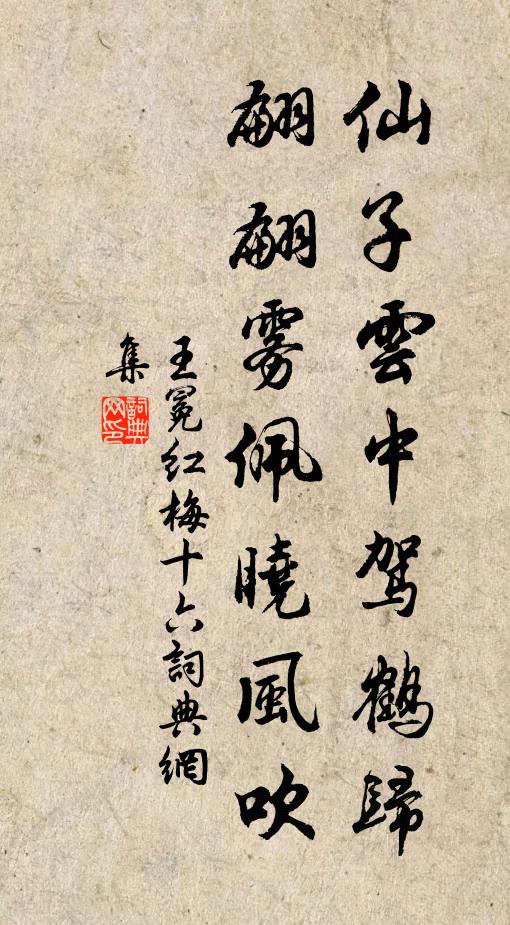 仙子雲中駕鶴歸
翩翩雾佩曉風吹
王冕红梅十六詞典網
集
詞典网印